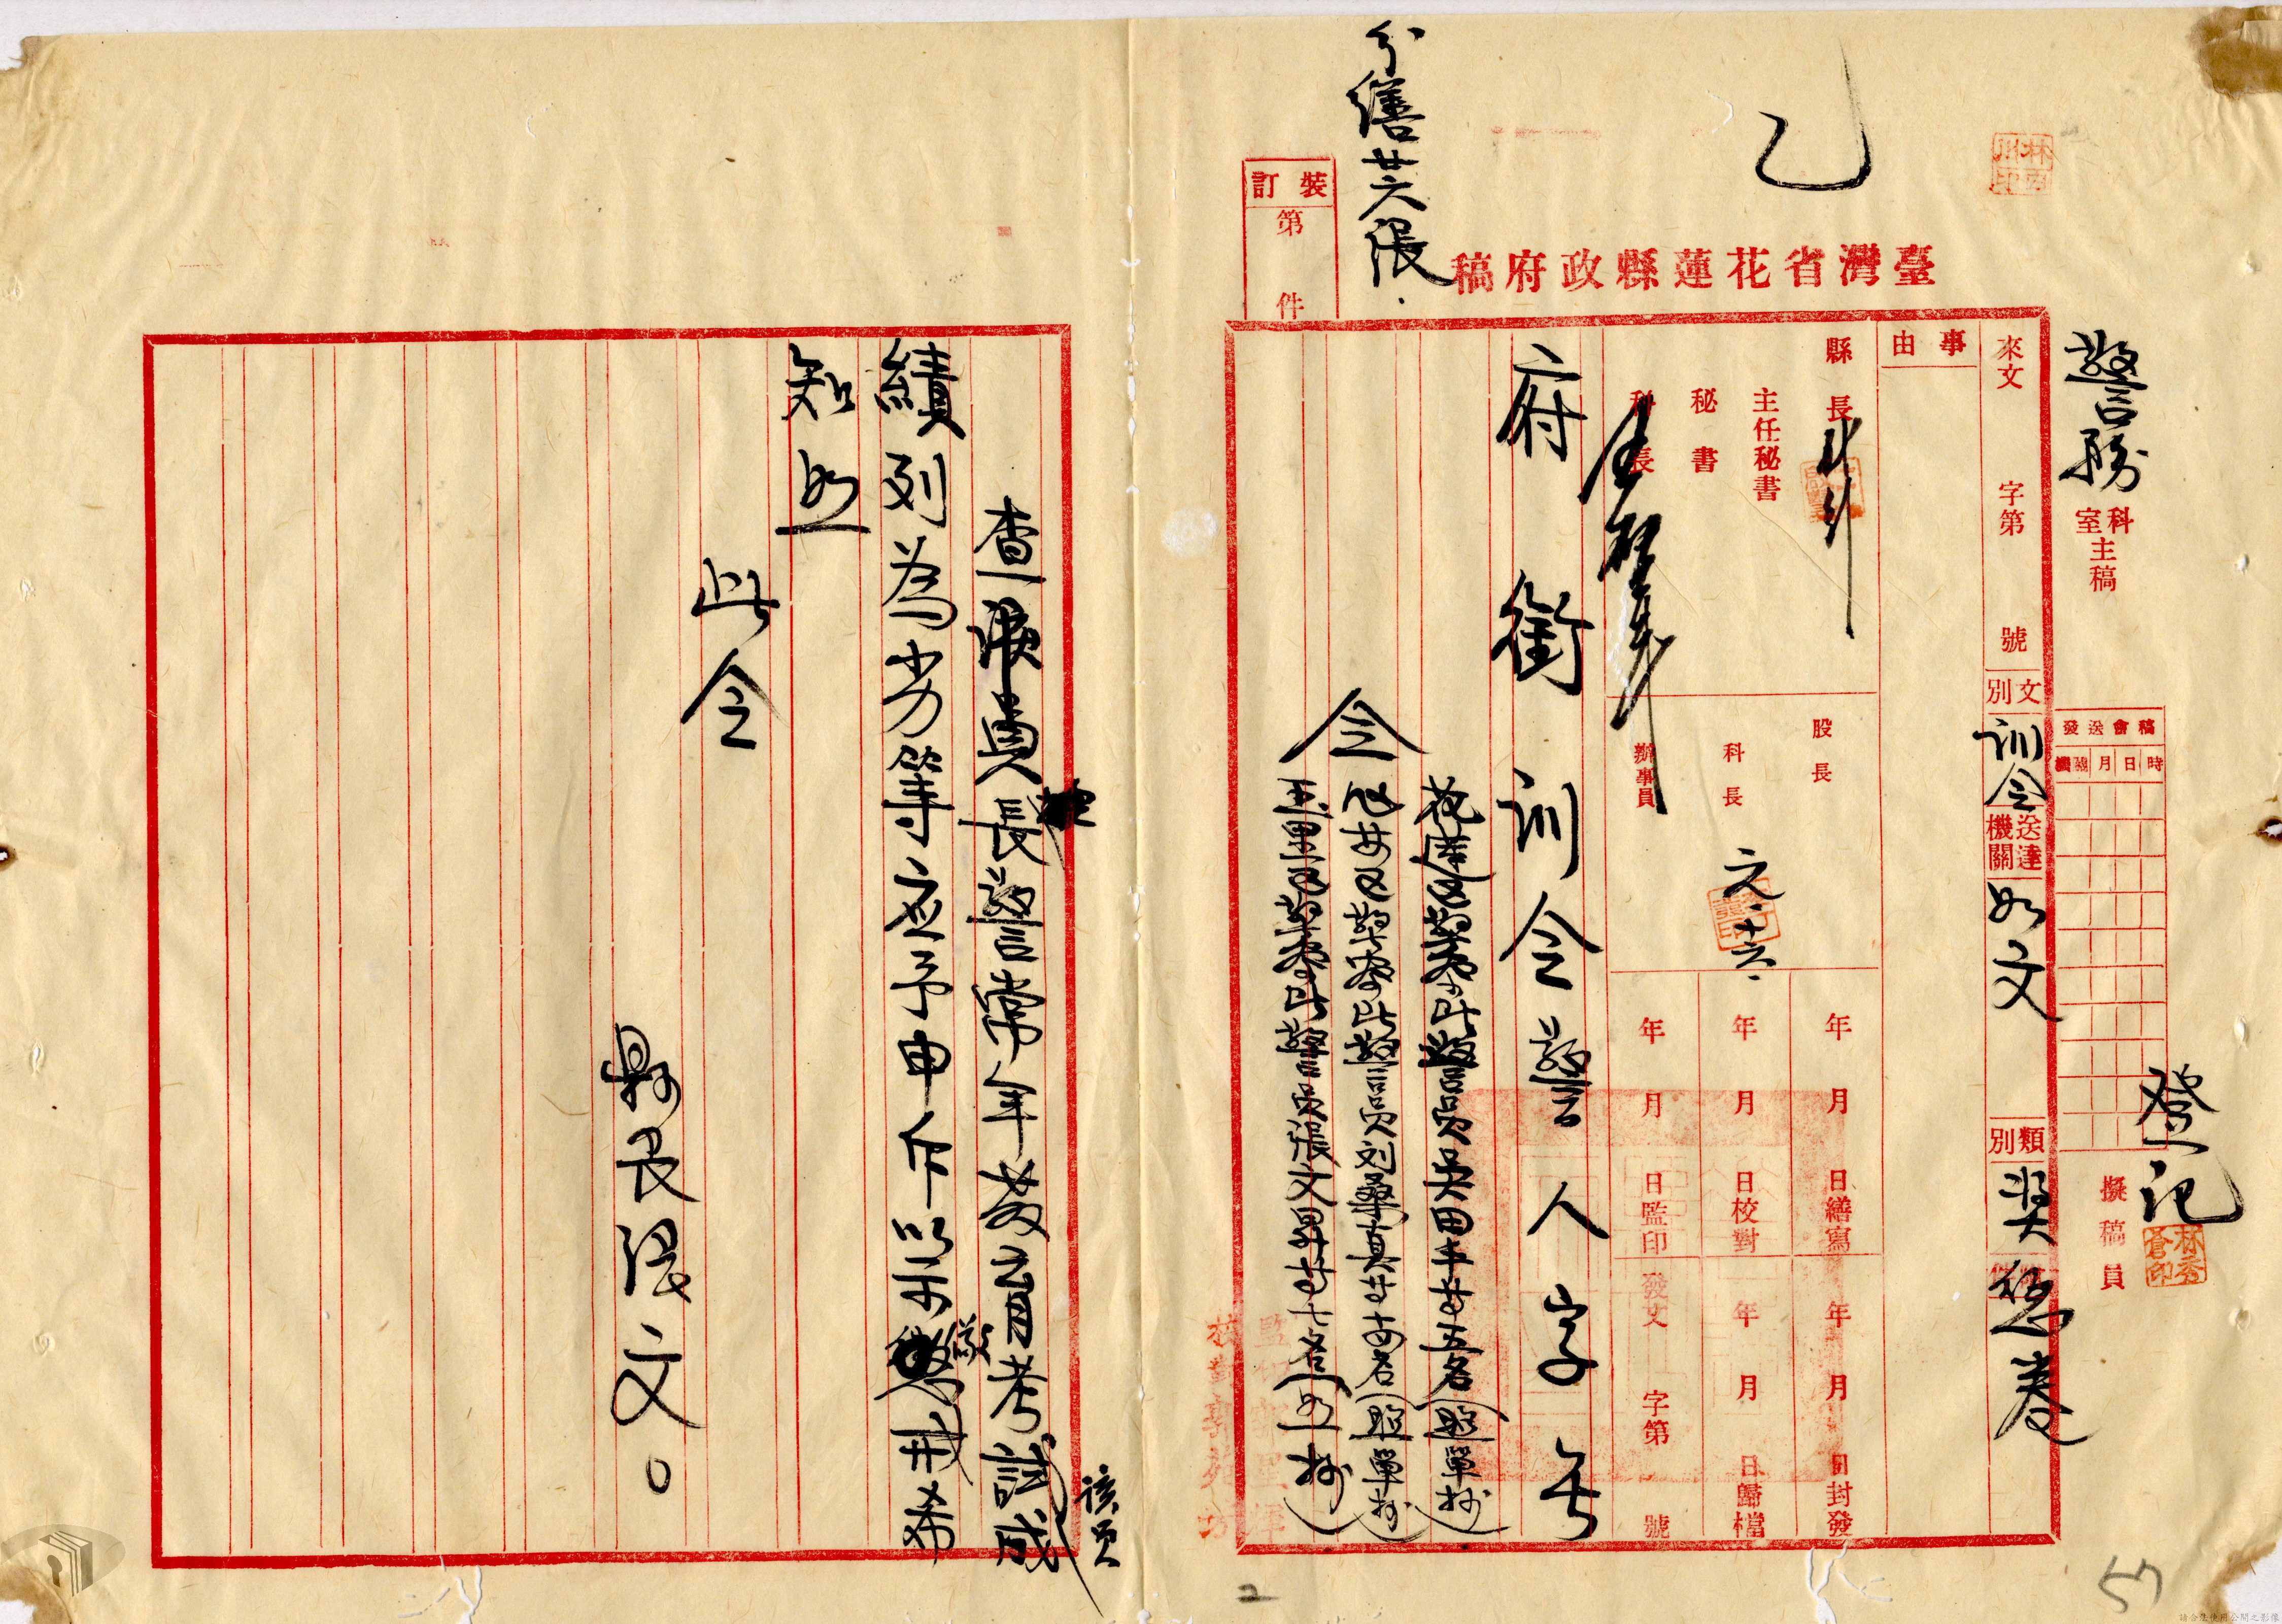 乙
分繕廿六張.
裝訂
第　件
臺灣省花蓮縣政府稿
警務
科室主稿
登記
擬稿員
林秀蒼印
稿會送發
時日月
來文　字第　號
文別
訓令
送達機關
如文
類別
獎懲卷
事由
縣長
主任秘書
秘書
科長
股長
科長
辦事員
六.十六.
年月日繕寫
年月日校對
年月日監印
年月日封發
年月日歸檔
發文　字第　號
府銜訓令警人字　號
令
花蓮區警察所警員吳田丰等五名
鳳林區警察所警員
玉里區警察所警員張文昇等七名
查
員長警常年教育考試成
該員
績列為劣等應予申斥以示儆戒希
知照
此令
縣長張文。
2
57
請合法使用公開之影像